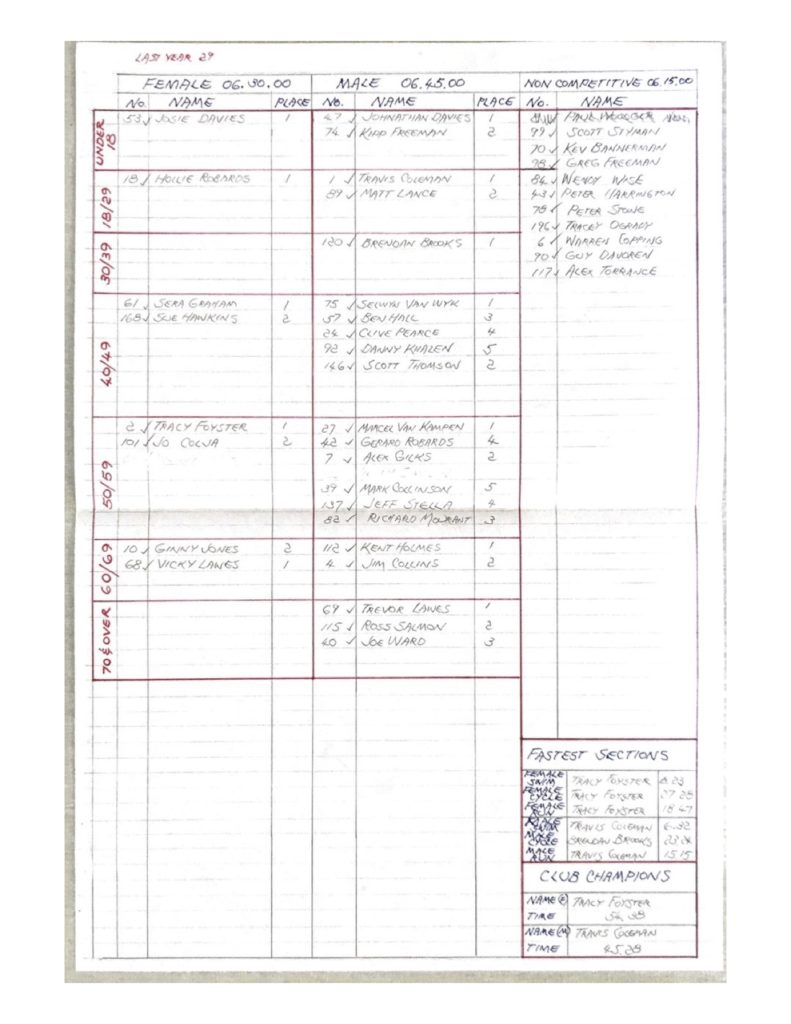 LAST YEAR 29
FEMALE 06.30.00 MALE 06.45.00 NON COMPETITIVE 06.15.00
No. NAME PLACE No. NAME PLACE No. NAME
UNDER 18
53 ✓ JOSIE DAVIES 1 47 ✓ JOHNATHAN DAVIES 1
74 ✓ KIPP FREEMAN 2 99 ✓ SCOTT SIYMAN
70 ✓ KEV BANNERMAN
98 ✓ GREG FREEMAN
18/29
18 ✓ HOLLIE ROBARDS 1 1 ✓ TRAVIS COLEMAN 1 84 ✓ WENDY WISE
89 ✓ MATT LANCE 2 43 ✓ PETER HARRINGTON
78 ✓ PETER STONE
196 ✓ TRACEY OGRADY
30/39
120 ✓ BRENDAN BROOKS 1 6 ✓ WARREN COPPING
90 ✓ GUY DAVOREN
117 ✓ ALEX TORRANCE
40/49
61 ✓ SERA GRAHAM 1 75 ✓ SELWYN VAN WYK 1
168 ✓ SUE HAWKINS 2 57 ✓ BEN HALL 3
24 ✓ CLIVE PEARCE 4
92 ✓ DANNY KHALEN 5
146 ✓ SCOTT THOMSON 2
50/59
2 ✓ TRACY FOYSTER 1 27 ✓ MARCEL VAN KAMPEN 1
101 ✓ JO COLJA 2 42 ✓ GERARD ROBARDS 4
7 ✓ ALEX GILKS 2
39 ✓ MARK COLLINSON 5
137 ✓ JEFF STELLA 4
82 ✓ RICHARD MOURANT 3
60/69
10 ✓ GINNY JONES 2 112 ✓ KENT HOLMES 1
68 ✓ VICKY LAWES 1 4 ✓ JIM COLLINS 2
70 & OVER
69 ✓ TREVOR LAWES 1
115 ✓ ROSS SALMON 2
40 ✓ JOE WARD 3
FASTEST SECTIONS
FEMALE SWIM TRACY FOYSTER 8.23
FEMALE CYCLE TRACY FOYSTER 27 28
FEMALE RUN TRACY FOYSTER 18.47
MALE SWIM TRAVIS COLEMAN 6.32
MALE CYCLE BRENDAN BROOKS
MALE RUN TRAVIS COLEMAN 15.15
CLUB CHAMPIONS
NAME (F) TRACY FOYSTER
TIME 54.38
NAME (M) TRAVIS COLEMAN
TIME 45.28